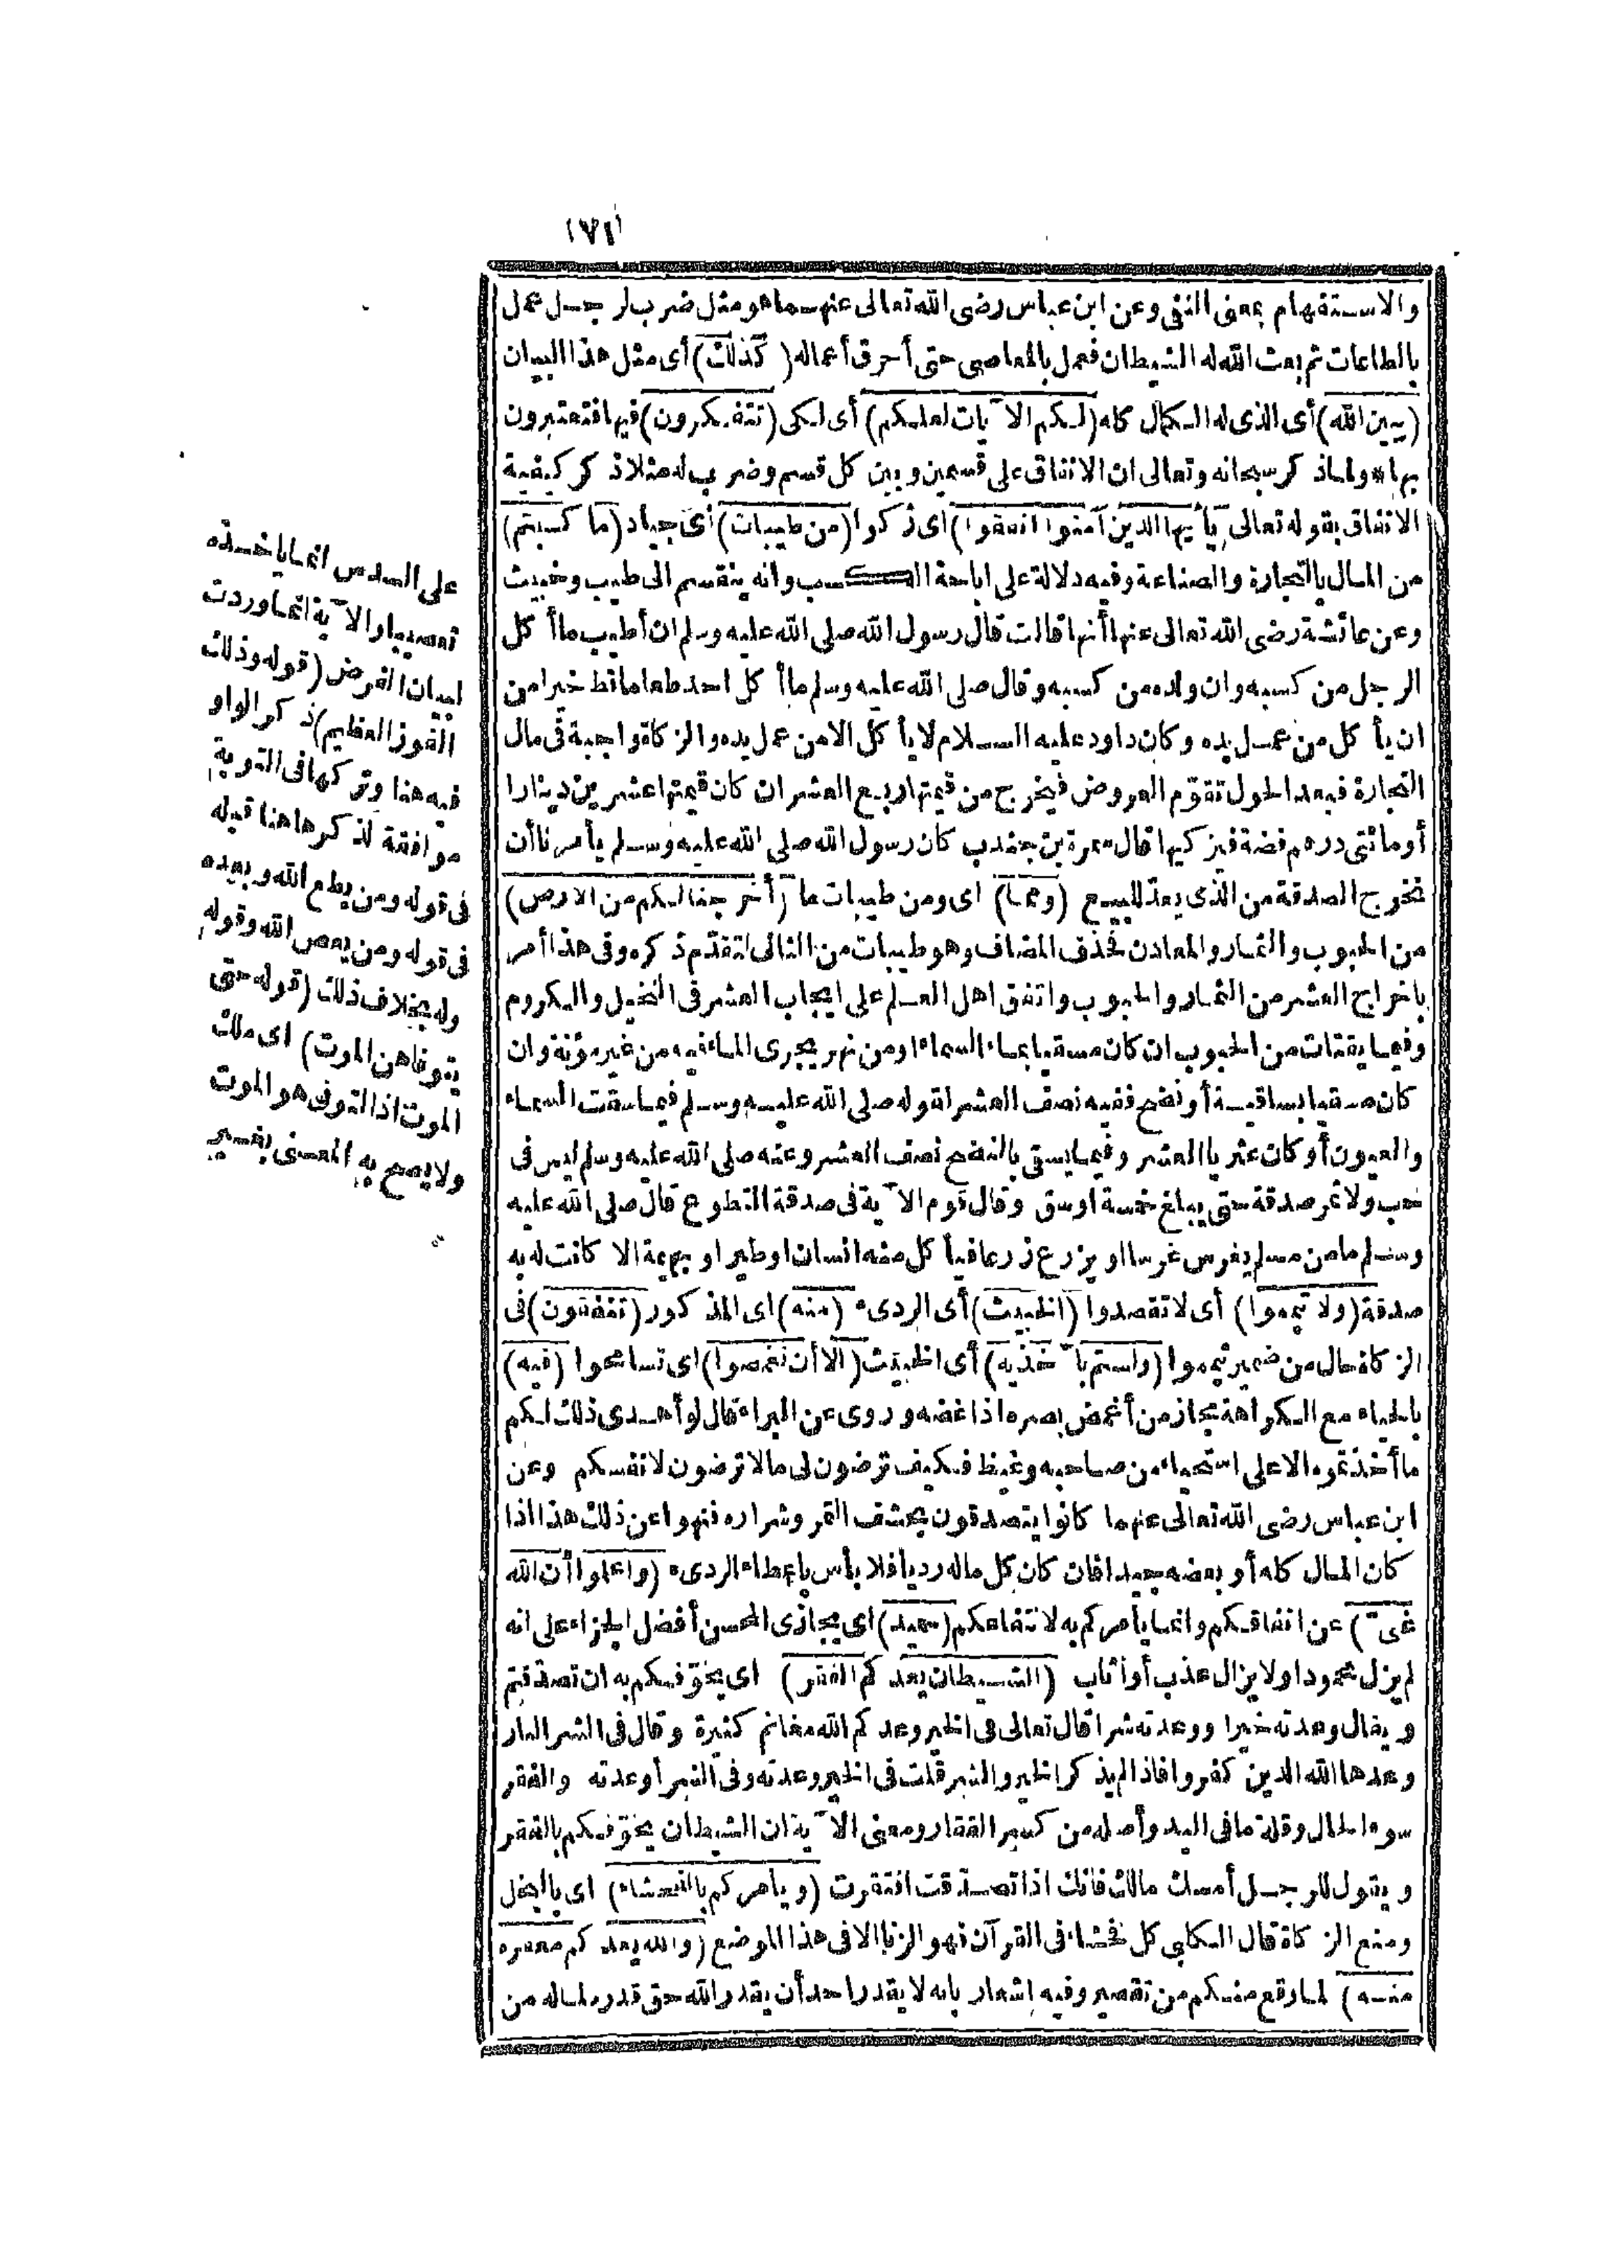 (١٧١)
والاستفهام بمعنى النفى وعن ابن عباس رضى الله تعالى عنهما هو مثل ضرب لرجل عمل
بالطاعات ثم بعث الله له الشيطان فعمل بالمعاصى حتى أحرق أعماله (كذلك) أى مثل هذا البيان
(يبين الله) أى الذى له الكمال كله (لكم الآيات لعلكم) أى لكى (تتفكرون) فيها فتعتبرون
بها* ولما ذكر سبحانه وتعالى ان الانفاق على قسمين وبين كل قسم وضرب له مثلا ذكر كيفية
الانفاق بقوله تعالى (يأيها الذين آمنوا انفقوا) اى زكوا (من طيبات) أى جياد (ما كسبتم)
من المال بالتجارة والصناعة وفيه دلالة على اباحة الكسب وانه ينقسم الى طيب وخبيث
وعن عائشة رضى الله تعالى عنها أنها قالت قال رسول الله صلى الله عليه وسلم ان أطيب ما أكل
الرجل من كسبه وان ولده من كسبه وقال صلى الله عليه وسلم ما أكل احد طعاما قط خيرا من
ان يأكل من عمل يده وكان داود عليه السلام لا يأكل الا من عمل يده والزكاة واجبة فى مال
التجارة فبعد الحول تقوّم العروض فيخرج من قيمتها ربع العشر ان كان قيمتها عشرين دينارا
أو مائتى درهم فضة فيزكيها قال سمرة بن جندب كان رسول الله صلى الله عليه وسلم يأمرنا أن
نخرج الصدقة من الذى يعدّ للبيع (ومما) اى ومن طيبات ما (أخرجنا لكم من الارض)
من الحبوب والثمار والمعادن فحذف المضاف وهو طيبات من الثانى لتقدّم ذكره وفى هذا أمر
باخراج العشر من الثمار والحبوب واتفق اهل العلم على ايجاب العشر فى النخيل والكروم
وفيما يقتات من الحبوب ان كان مسقيا بماء السماء او من نهر يجرى الماء فيه من غير مؤنة وان
كان مسقيا بساقية أو نضح ففيه نصف العشر لقوله صلى الله عليه وسلم فيما سقت السماء
والعيون أو كان عثريا العشر وفيما يسقى بالنضح نصف العشر وعنه صلى الله عليه وسلم ليس فى
حب ولا تمر صدقة حتى يبلغ خمسة اوسق وقال قوم الآية فى صدقة التطوع قال صلى الله عليه
وسلم ما من مسلم يغرس غرسا او يزرع زرعا فيأكل منه انسان او طير او بهيمة الا كانت له به
صدقة (ولا تيمموا) أى لا تقصدوا (الخبيث) أى الردىء (منه) اى المذكور (تنفقون) فى
الزكاة حال من ضمير تيمموا (ولستم بآخذيه) أى الخبيث (الا أن تغمضوا) اى تسامحوا (فيه)
بالحياء مع الكراهة مجاز من أغمض بصره اذا غضه وروى عن البراء قال لو أهدى ذلك لكم
ما أخذتموه الا على استحياء من صاحبه وغيظ فكيف ترضون لى ما لا ترضون لانفسكم وعن
ابن عباس رضى الله تعالى عنهما كانوا يتصدقون بحشف التمر وشراره فنهوا عن ذلك هذا اذا
كان المال كله أو بعضه جيدا فان كان كل ماله رديأ فلا بأس باعطاء الردىء (واعلموا أن الله
غنىّ) عن انفاقكم وانما يأمركم به لانتفاعكم (حميد) اى يجازى المحسن أفضل الجزاء على انه
لم يزل محمودا ولا يزال عذب أو أثاب (الشيطان يعدكم الفقر) اى يخوّفكم به ان تصدقتم
ويقال وعدته خيرا ووعدته شرا قال تعالى فى الخير وعدكم الله مغانم كثيرة وقال فى الشر النار
وعدها الله الذين كفروا فاذا لم يذكر الخير والشر قلت فى الخير وعدته وفى الشر أوعدته والفقر
سوء الحال وقلة ما فى اليد وأصله من كسر الفقار ومعنى الآية ان الشيطان يخوّفكم بالفقر
ويقول للرجل أمسك مالك فانك اذا تصدّقت افتقرت (ويامركم بالفحشاء) اى بالبخل
ومنع الزكاة قال الكلبى كل فحشاء فى القرآن فهو الزنا الا فى هذا الموضع (والله يعدكم مغفرة
منه) لما وقع منكم من تقصير وفيه اشعار بانه لا يقدر احد أن يقدر الله حق قدره لما له من
على السدس انما ياخذه
تعصيبا والآية انما وردت
لبيان الفرض (قوله وذلك
الفوز العظيم) ذكر الواو
فيه هنا وتركها فى التوبة
موافقة لذكرها هنا قبله
فى قوله ومن يطع الله وبعده
فى قوله ومن يعص الله وقوله
وله بخلاف ذلك (قوله حتى
يتوفاهن الموت) اى ملك
الموت اذ التوفى هو الموت
ولا يصح به المعنى بغير